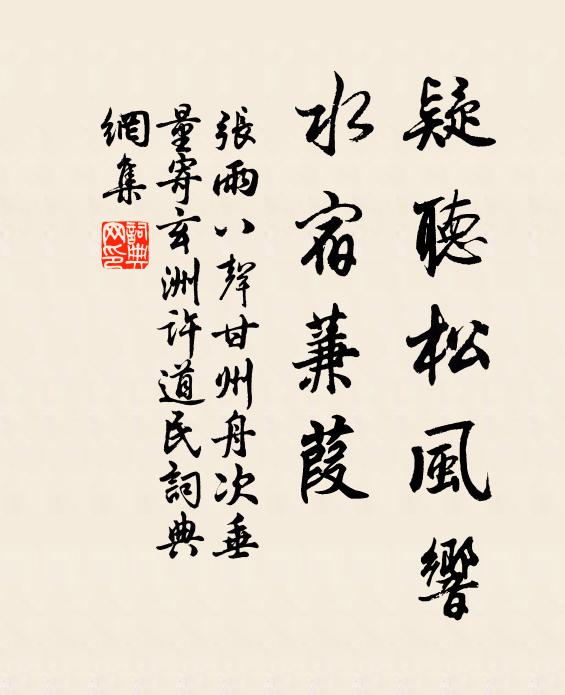 疑聽松風響
水宿蒹葭
張雨八聲甘州舟次垂
量寄玄洲許道民詞典
網集
詞典网印